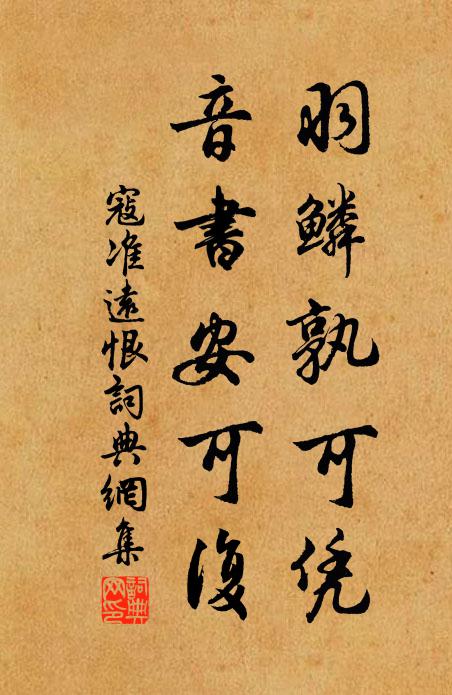 羽鱗孰可凭
音書安可復
寇准遠恨詞典網集
詞典网印